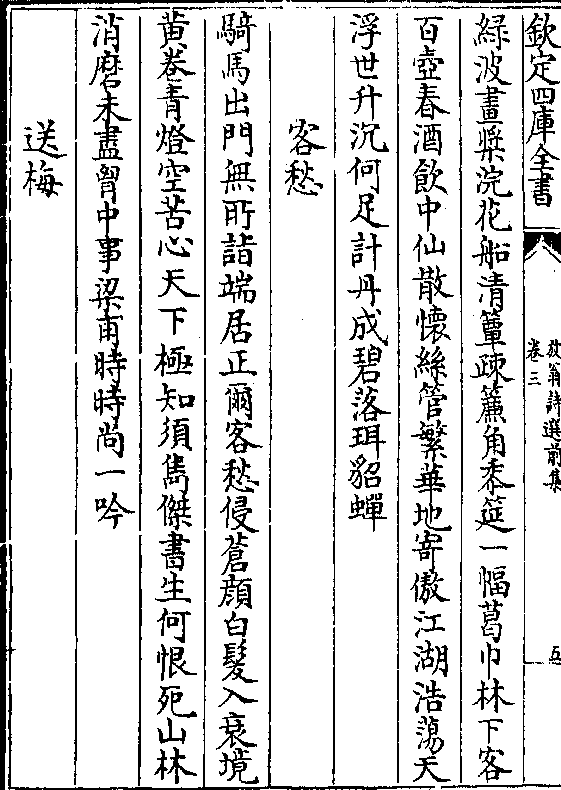 欽定四庫全書
放翁詩選前集
卷三
五
綠波畫槳浣花船清簟疎簾角黍筵一幅葛巾林下客
百壺春酒飲中仙散懷絲管繁華地寄傲江湖浩蕩天
浮世升沉何足計丹成碧落珥貂蟬
客愁
騎馬出門無所詣端居正爾客愁侵蒼顔白髮入衰境
黄卷青燈空苦心天下極知須雋傑書生何恨死山林
消磨未盡胷中事梁甫時時尚一吟
送梅